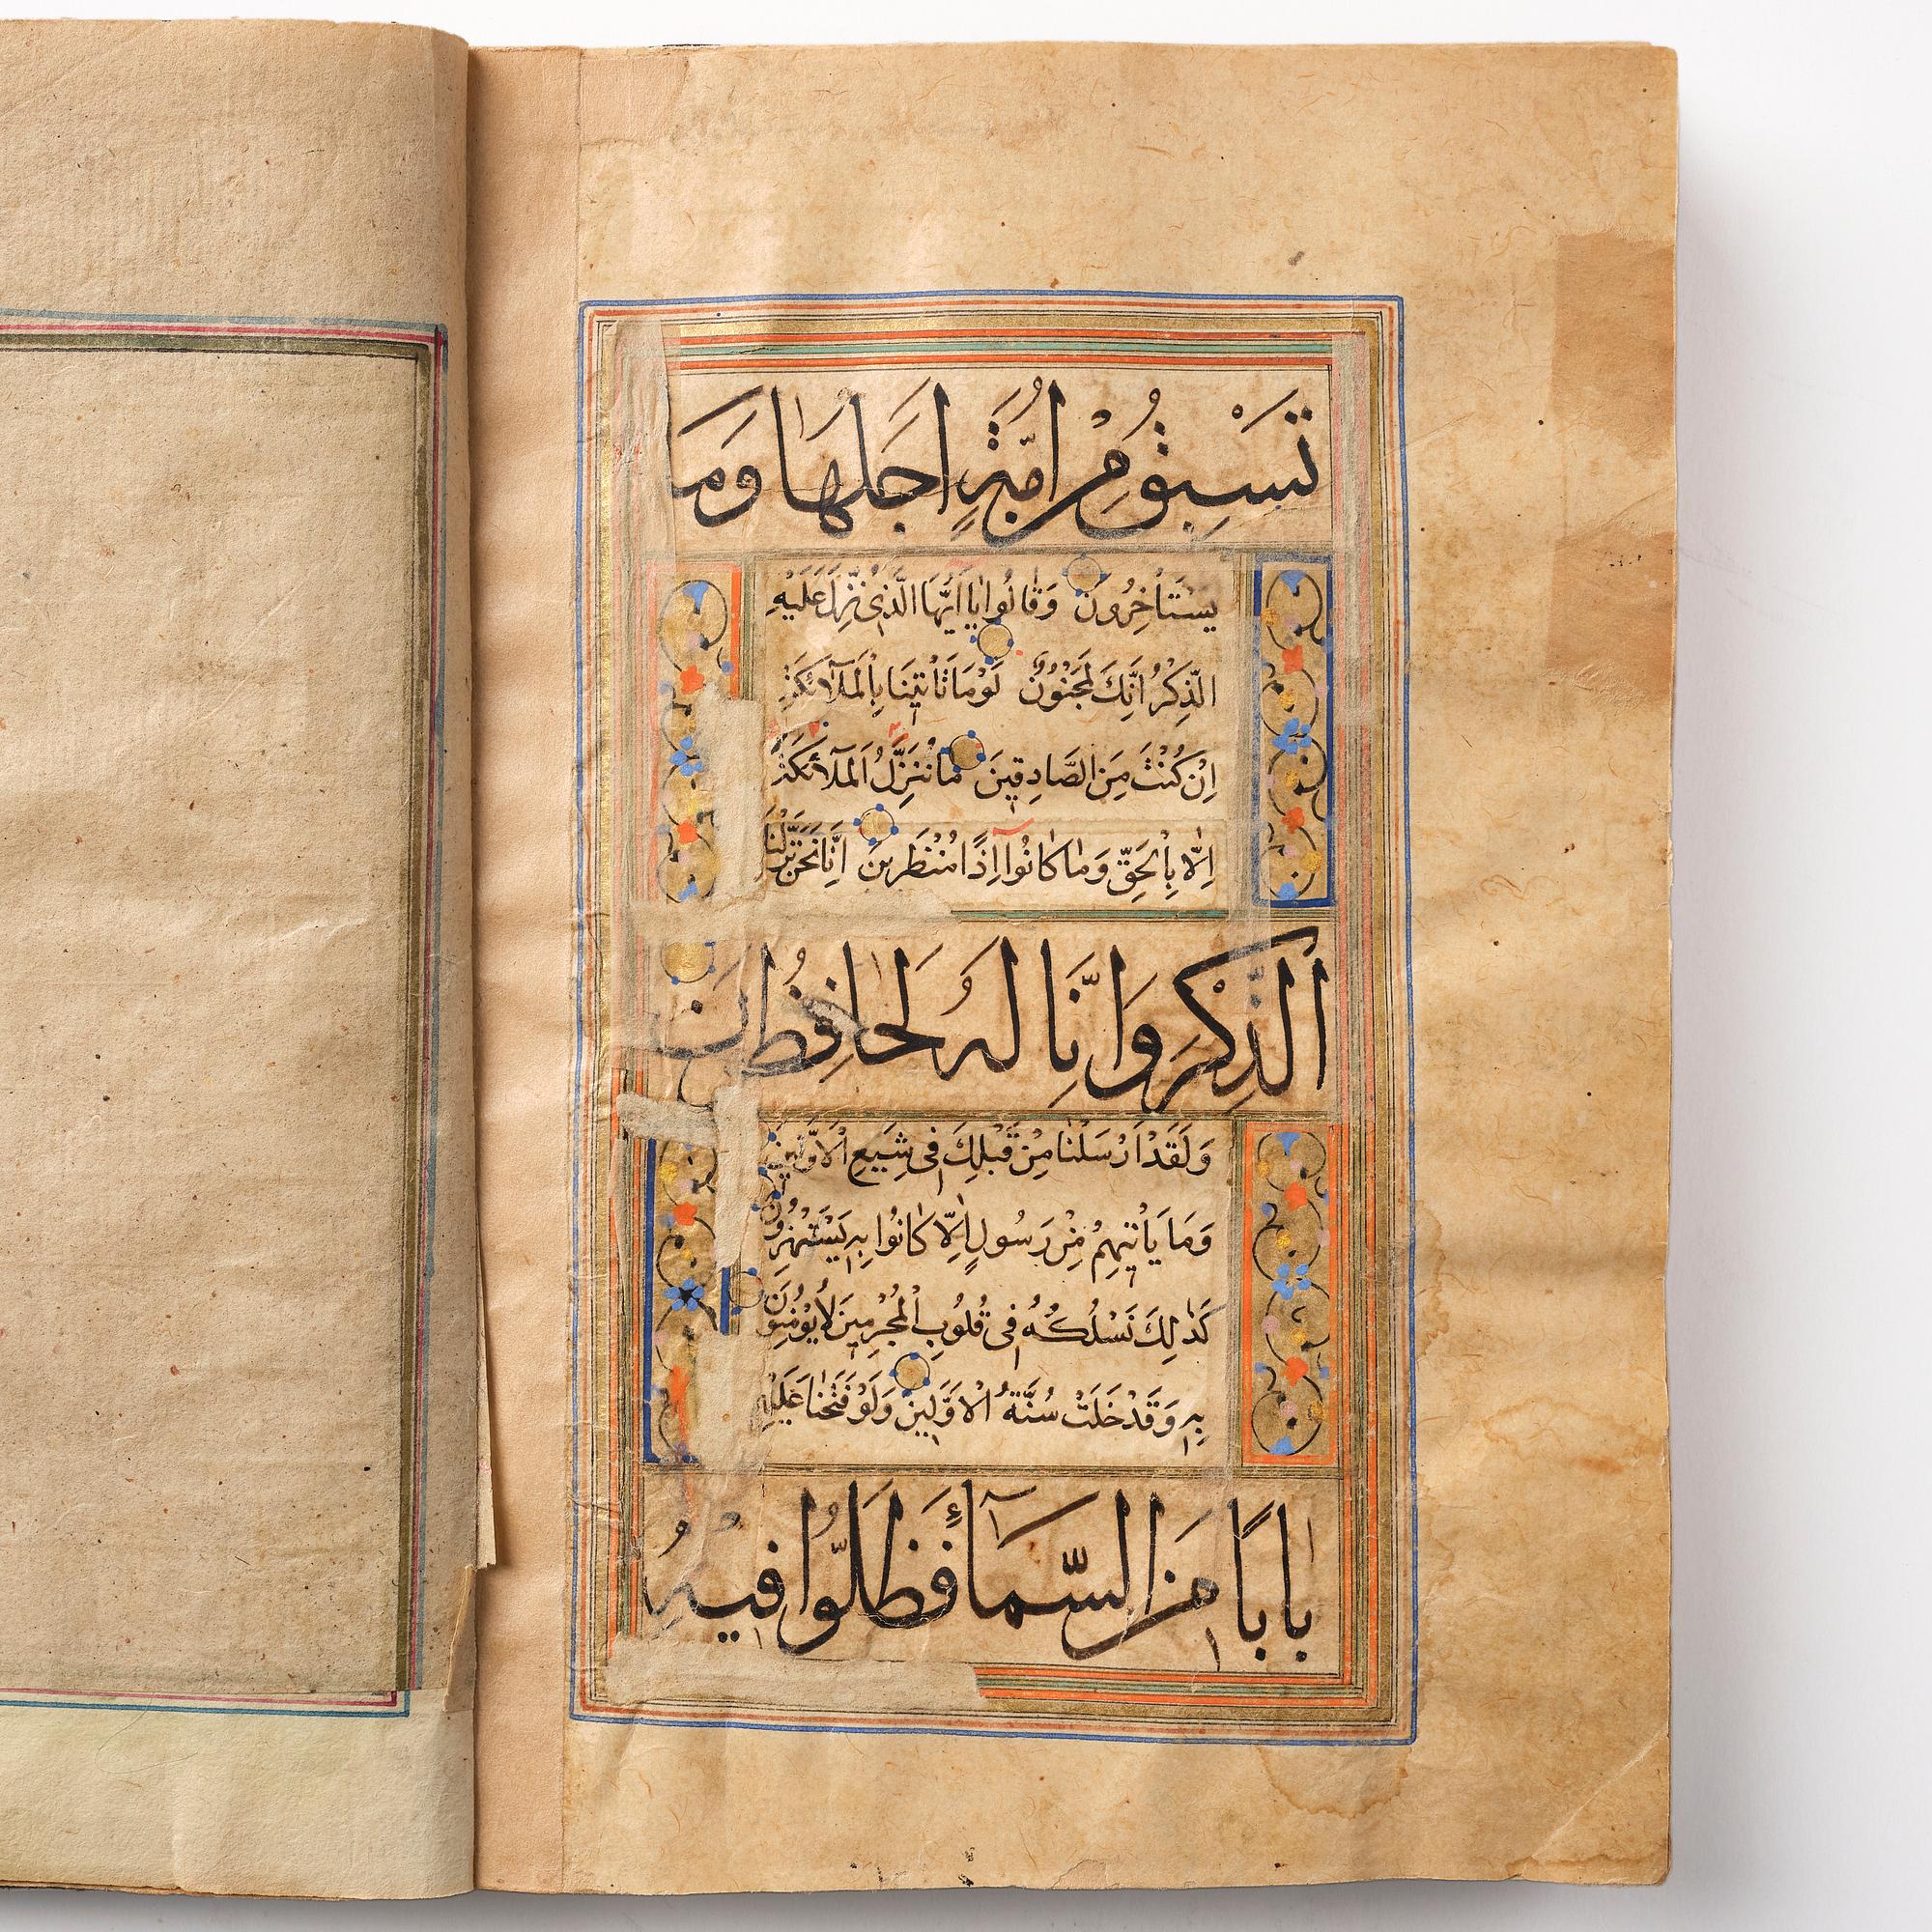 تَسْبِقُ مِنْ اُمَّةٍ اَجَلَهَا وَمَا
يَسْتَأْخِرُونَ وَقَالُوا يَا اَيُّهَا الَّذِى نُزِّلَ عَلَيْهِ
الذِّكْرُ اِنَّكَ لَمَجْنُونٌ لَوْمَا تَأْتِينَا بِالْمَلَآئِكَةِ
اِنْ كُنْتَ مِنَ الصَّادِقِينَ مَا نُنَزِّلُ الْمَلَآئِكَةَ
اِلَّا بِالْحَقِّ وَمَا كَانُوا اِذًا مُنْظَرِينَ اِنَّا نَحْنُ نَزَّلْنَا
الذِّكْرَ وَاِنَّا لَهُ لَحَافِظُونَ
وَلَقَدْ اَرْسَلْنَا مِنْ قَبْلِكَ فِى شِيَعِ الْاَوَّلِينَ
وَمَا يَأْتِيهِمْ مِنْ رَسُولٍ اِلَّا كَانُوا بِهِ يَسْتَهْزِؤُنَ
كَذٰلِكَ نَسْلُكُهُ فِى قُلُوبِ الْمُجْرِمِينَ لَا يُؤْمِنُونَ
بِهِ وَقَدْ خَلَتْ سُنَّةُ الْاَوَّلِينَ وَلَوْ فَتَحْنَا عَلَيْهِ
بَابًا مِنَ السَّمَآءِ فَظَلُّوا فِيهِ